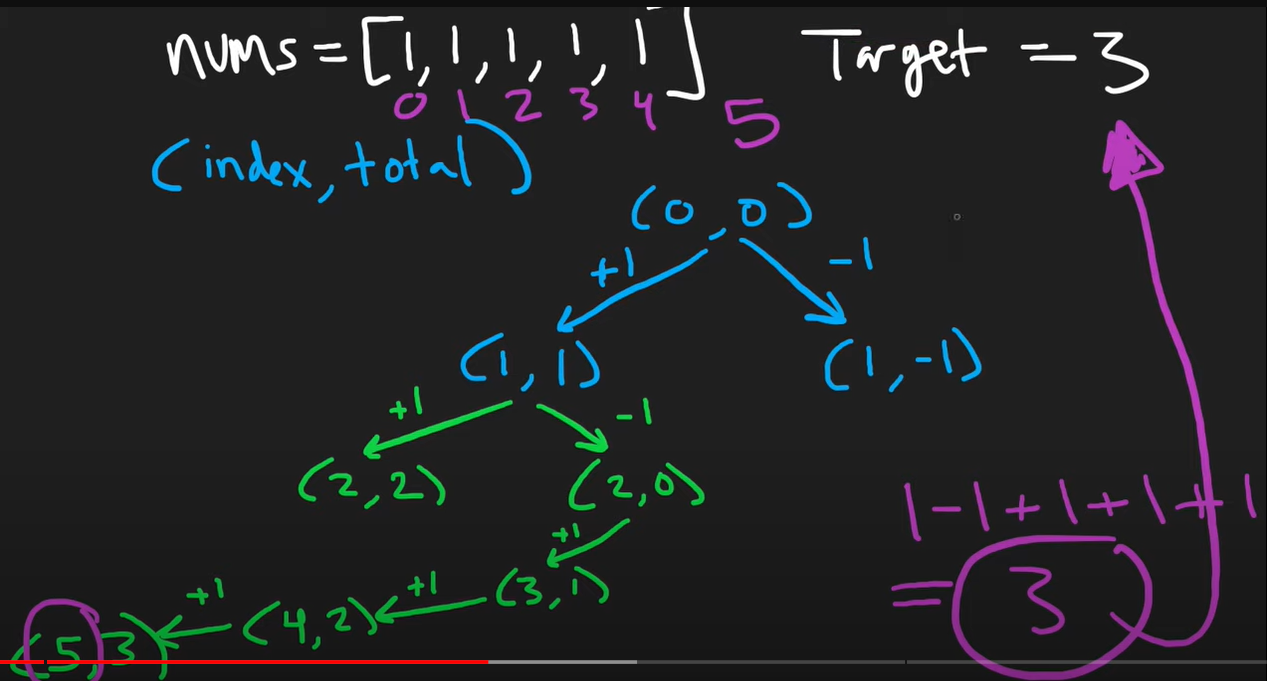 nums = [1, 1, 1, 1, 1] Target = 3
0 1 2 3 4 5
(index, total)
(0, 0)
+1 -1
(1, 1) (1, -1)
+1 -1
(2, 2) (2, 0)
1 - 1 + 1 + 1 + 1
+1
= 3
+1 +1 (3, 1)
(5, 3) (4, 2)